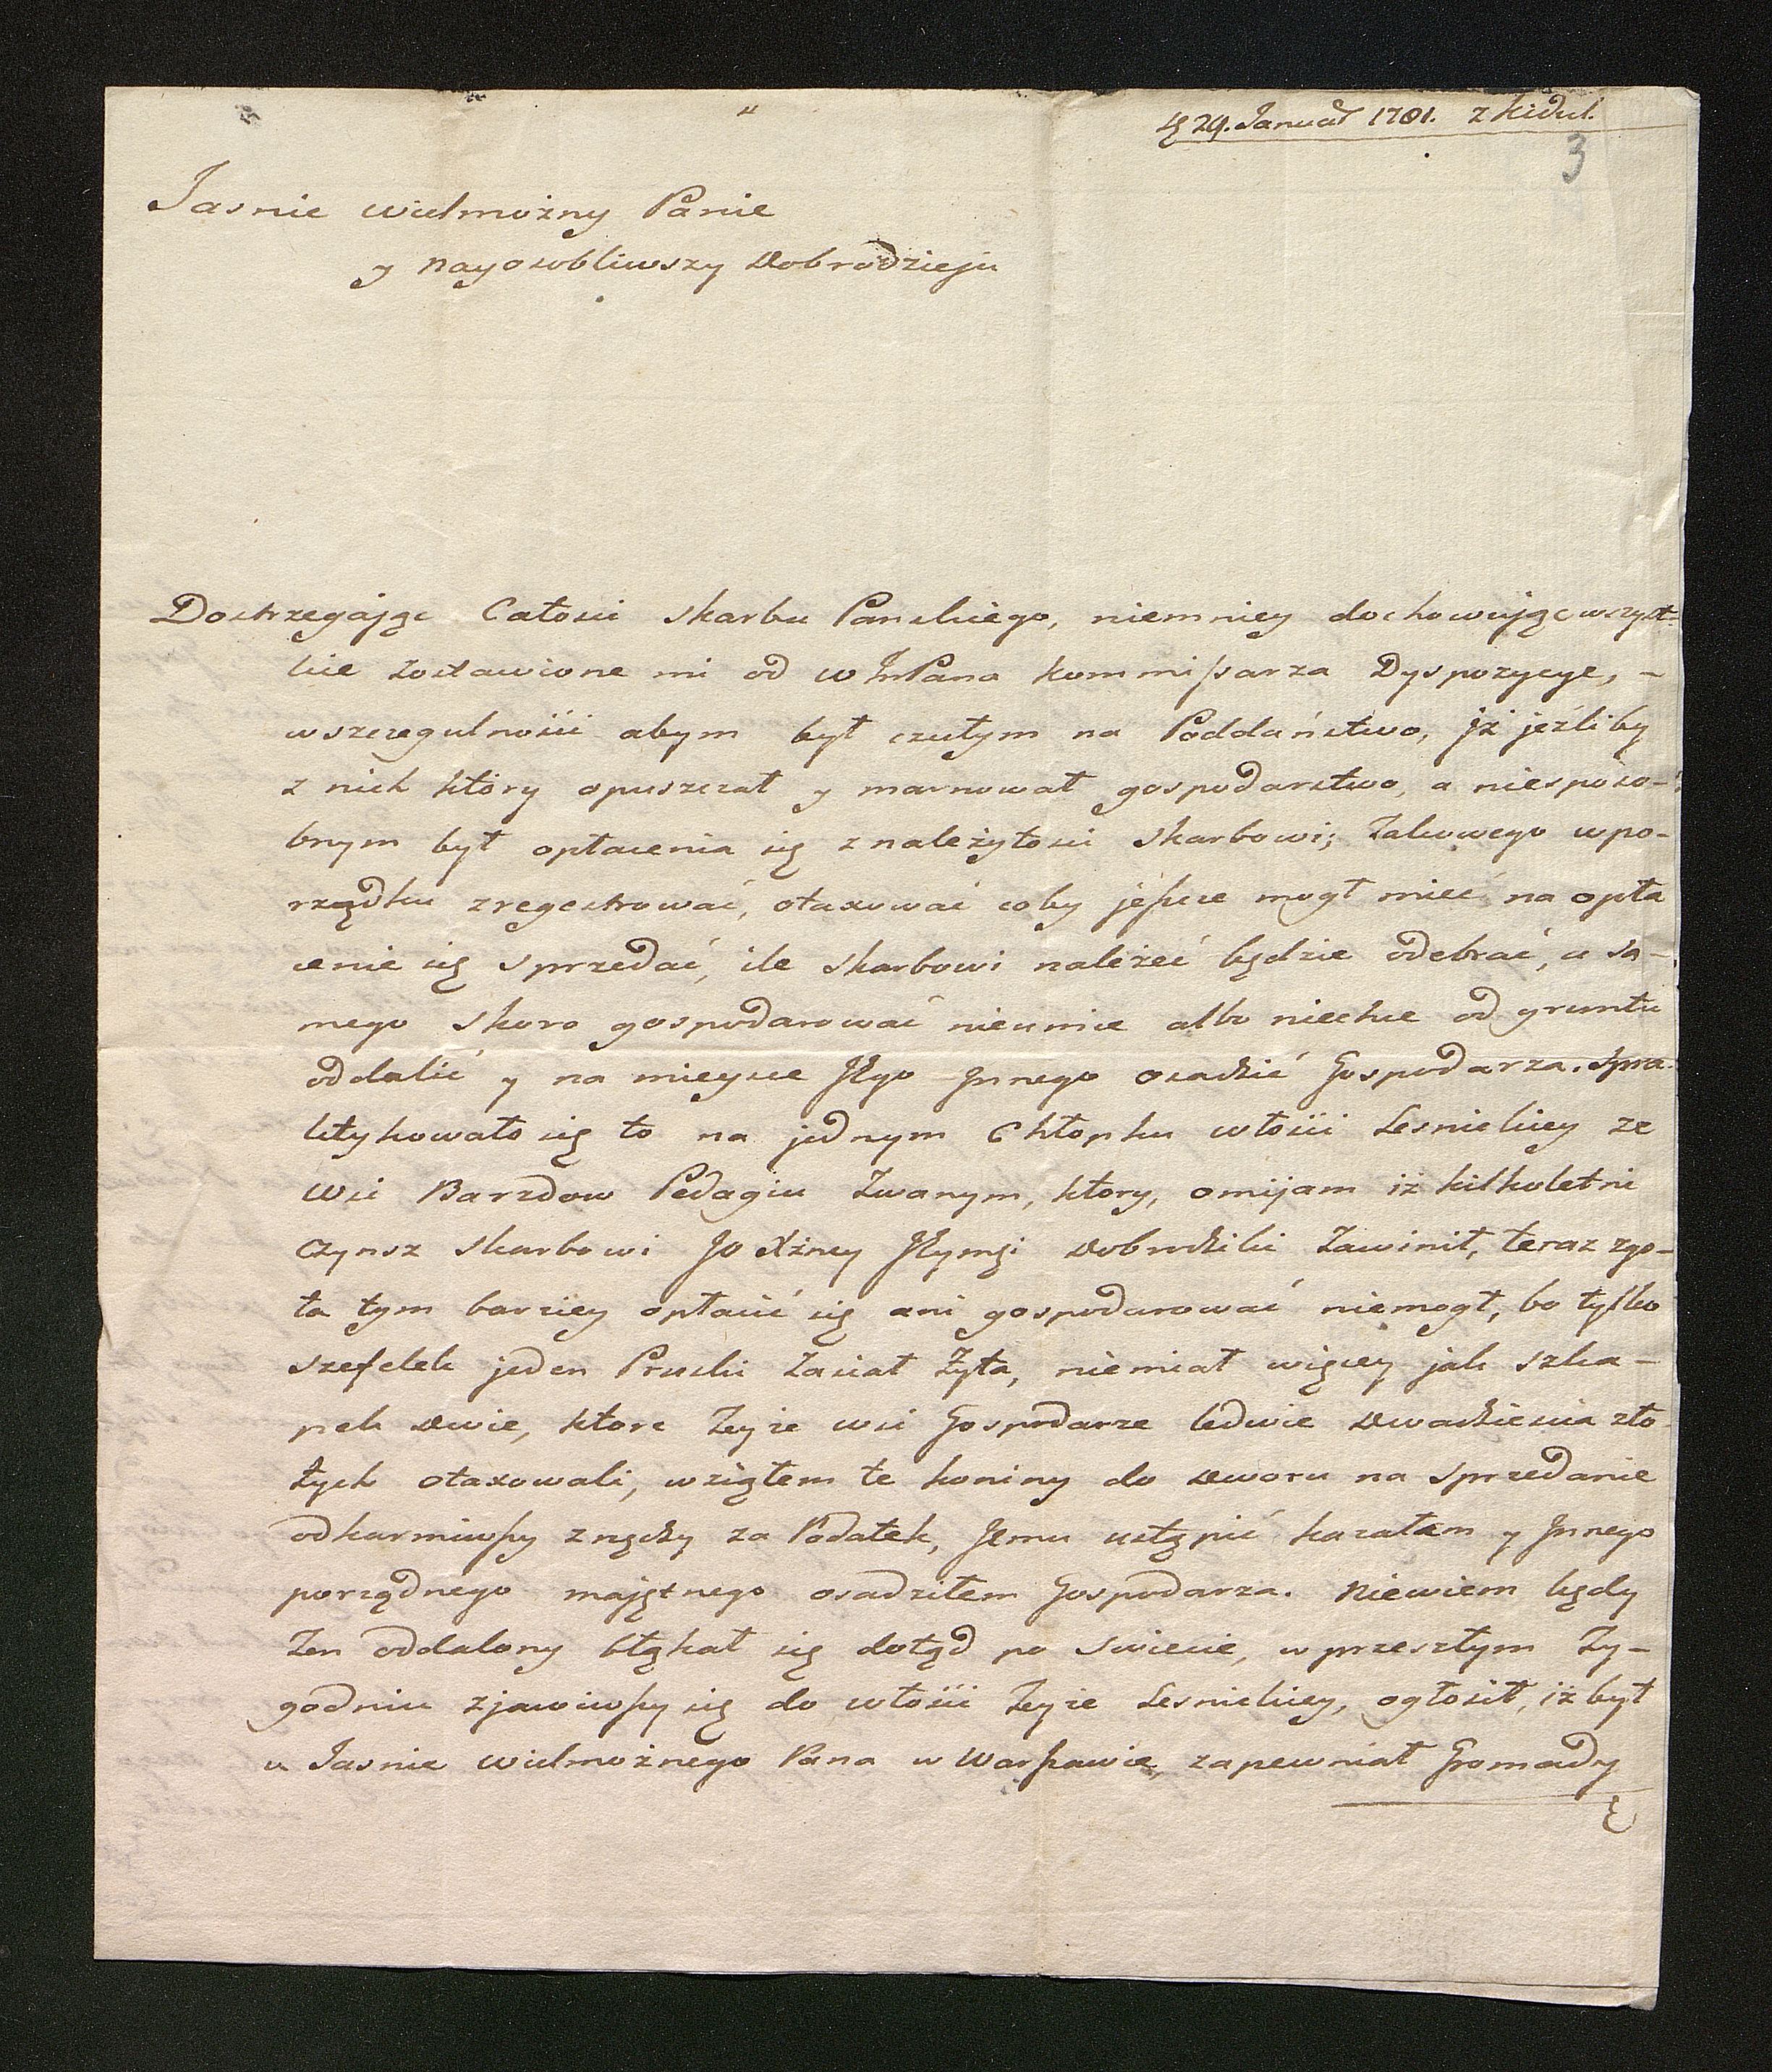 29. Januar 1781. z Kidul.
3
Jasnie wielmożny Panie
y nayosobliwszy Dobrodzieju
Dostrzegając Całosci skarbu Panskiego, niemniey dochowując wszyst-
kie zostawione mi od W JmPana Kommissarza Dyspozycye, -
wszczegulności abym był czułym na Poddaństwo, Jż jeżliby
z nich który opuszczał y marnował gospodarstwo, a niesposo-
bnym był opłacenia się z należytosci skarbowi; Takowego wpo-
rządku zregestrować, otaxować coby jeszcze mogł mieć na opła
cenie się sprzedać, ile skarbowi należeć będzie odebrać, a sa-
mego skoro gospodarować nieumie albo niechce od gruntu
oddalić y na mieysce Jego Jnnego osadzić Gospodarza. Spra-
ktykowało się to na jednym Chłopku włości Lesnickiey ze
Wsi Barzdow Pedagiu Zwanym, ktory, omijam iż kilkoletni
czynsz skarbowi JO Xżney Jeymci Dobrodziki Zawinił, teraz zgo-
ła tym barziey opłacić się ani gospodarować niemogł, bo tylko
szefelek jeden Pruski Zasiał Zyta, niemiał więcey jak szka-
pek dwie, ktore Teyże wsi Gospodarze ledwie dwadziescia zło
tych otaxowali, wziąłem te koniny do dworu na sprzedanie
odkarmiwszy z nędzy za Podatek, Jemu ustąpić kazałem y Jnnego
porządnego majętnego osadziłem Gospodarza. Niewiem kędy
Ten oddalony błąkał się dotąd po swiecie, w przeszłym Ty-
godniu zjawiwszy się do włości Teyże Lesnickiey, ogłosił, iż był
u Jasnie wielmożnego Pana w Warszawie, zapewniał Gromady